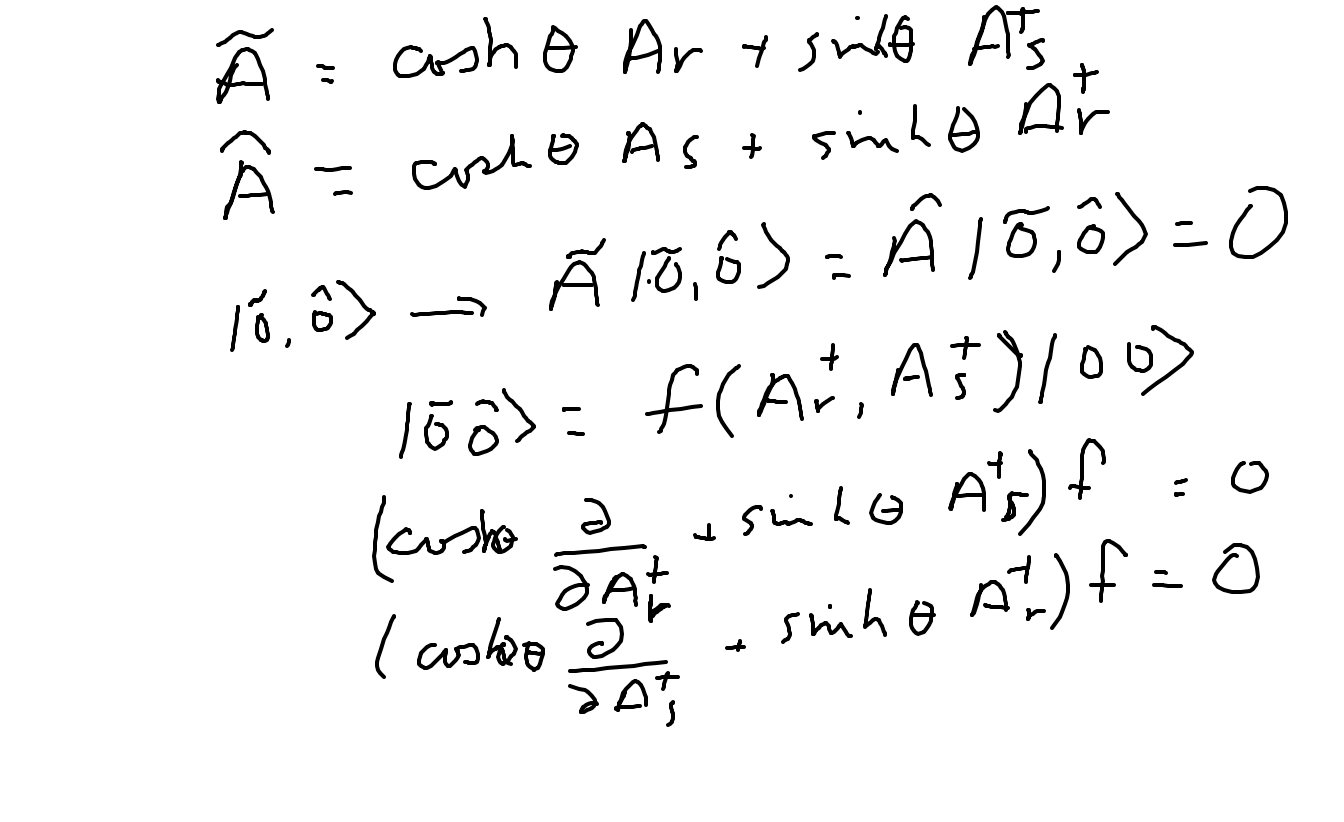 Ã = coshθ Ar + sinhθ As⁺
Â = coshθ As + sinhθ Ar⁺
|õ, ô⟩ → Ã |õ, ô⟩ = Â |õ, ô⟩ = 0
|õ ô⟩ = f(Ar⁺, As⁺)|00⟩
(coshθ ∂/∂Ar⁺ + sinhθ As⁺) f = 0
(coshθ ∂/∂As⁺ + sinhθ Ar⁺) f = 0